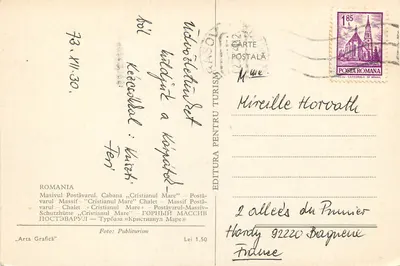 73. XII. 30.
Üdvözletünket
küldjük a Kárpátok-
ból
Kézcsókkal:
Teri
ROMANIA
Masivul Postăvarul. Cabana „Cristianul Mare" – Postă-
varul Massif – "Cristianul Mare" Chalet – Massif Postă-
varul – Chalet «Cristianul Mare» – Postăvarul-Massiv-
Schutzhütte „Cristianul Mare" – ГОРНЫЙ МАССИВ
ПОСТЭВАРУЛ – Турбаза «Кристианул Маре»
Foto: Publiturism
„Arta Grafică"
Lei 1,50
EDITURA PENTRU TURISM
CARTE
POSTALĂ
1,85
POSTA ROMANA
Mme
Mireille Horvath
2 allées du Prunier
92220 Bagneux
France